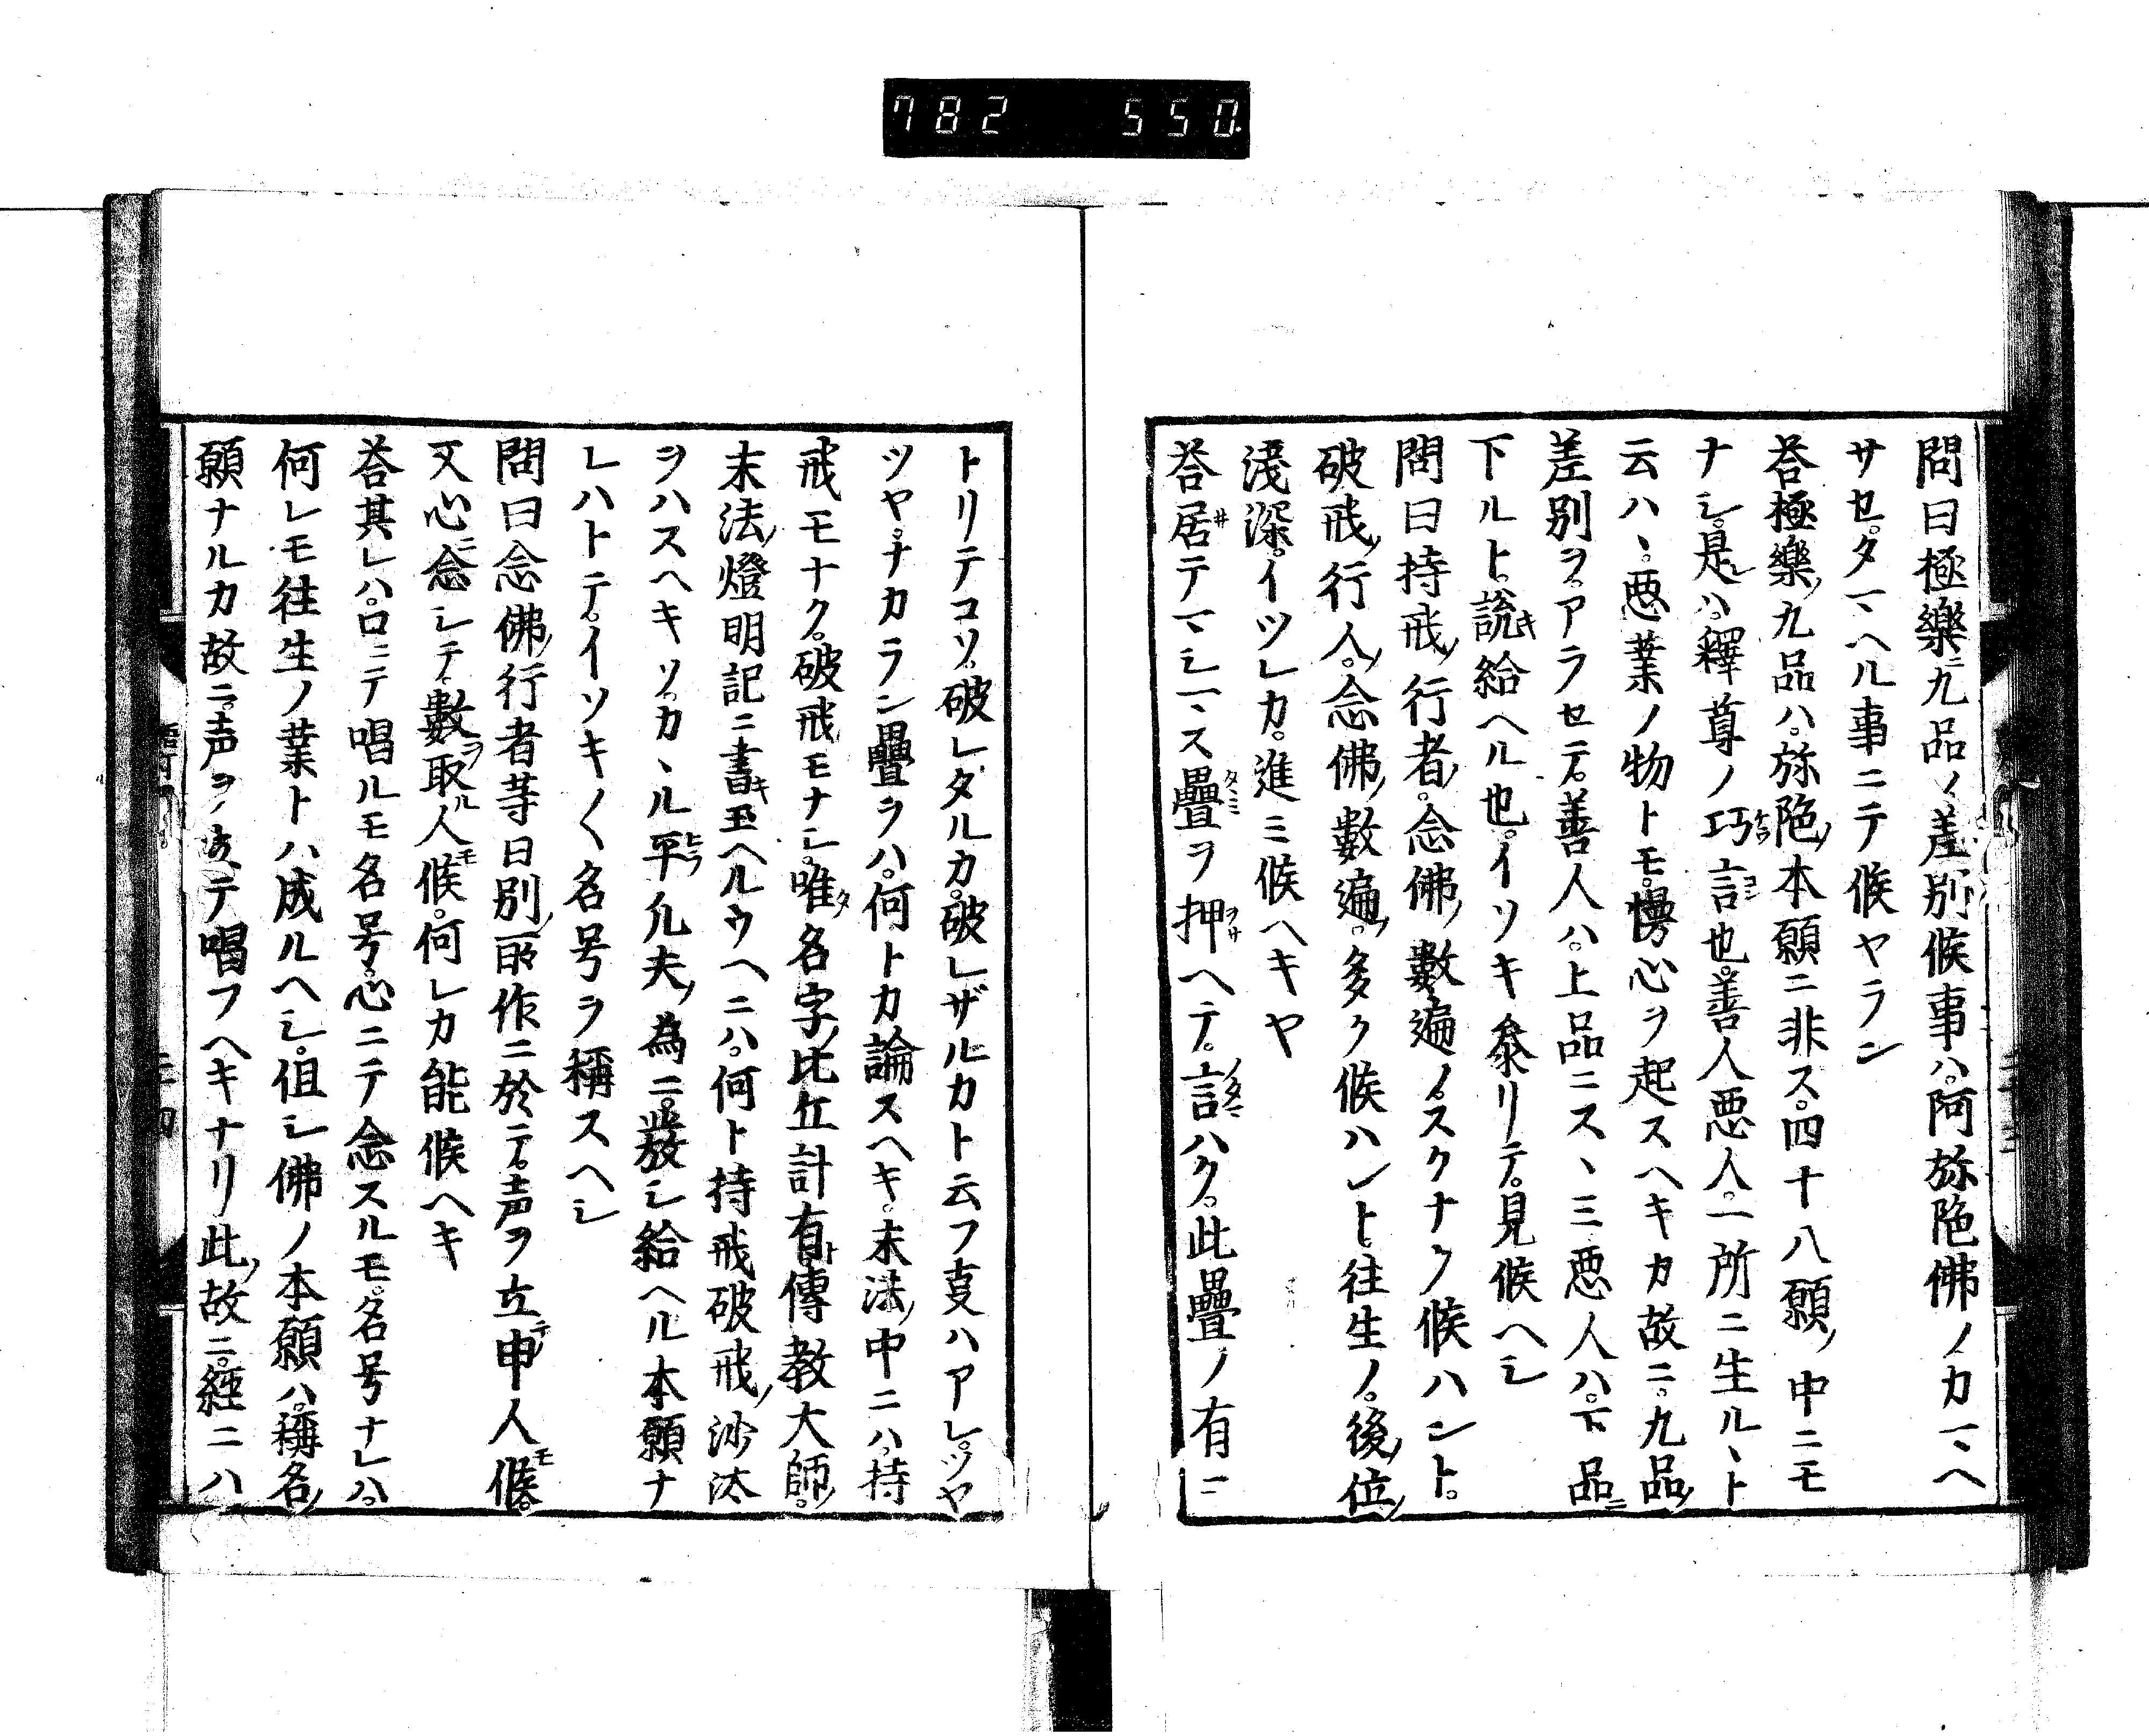 782 550
問曰極樂ニ九品ノ差別候事ハ。阿弥陁佛ノカマヘ
サセ。タマヘル事ニテ候ヤラン
荅極樂ノ九品ハ。弥陁ノ本願ニ非ス。四十八願ノ中ニモ
ナシ。是レハ。釋尊ノ巧言也。善人悪人。一所ニ生ルヽト
云ハヽ。悪業ノ物トモ。慢心ヲ起スヘキカ故ニ。九品ノ
差別ヲ。アラセテ。善人ハ。上品ニスヽミ悪人ハ。下品ニ
下ルト。說キ給ヘル也。イソキ参リテ。見候ヘシ
問曰持戒ノ行者ノ。念佛ノ數遍ノ。スクナク候ハント。
破戒ノ行人ノ。念佛ノ數遍ノ。多ク候ハント。往生ノ。後ノ位ノ
淺深。イツレカ。進ミ候ヘキヤ
荅居テマシマス疊ヲ押ヘテ。言ハク。此疊ノ有ニ
トリテコソ。破レタルカ。破レザルカト云フ叓ハアレ。ツヤ
ツヤ。ナカラン疊ヲハ。何トカ論スヘキ。末法ノ中ニハ。持
戒モナク。破戒モナシ。唯名字ノ比丘計有ト。傳教大師ノ。
末法ノ燈明記ニ書キ玉ヘルウヘニハ。何ト持戒破戒ノ沙汰
ヲハスヘキソ。カヽル平凢夫ノ為ニ。發シ給ヘル本願ナ
レハトテ。イソキ〱名号ヲ稱スヘシ
問曰念佛ノ行者等日別ノ所作ニ於テ。声ヲ立テ申ス人モ候。
又心ニ念シテ。數ヲ取ル人モ候。何レカ能候ヘキ
荅其レハ。口ニテ唱ルモ名号。心ニテ念スルモ。名号ナレハ。
何レモ往生ノ業トハ成ルヘシ。但シ佛ノ本願ハ。稱名ノ
願ナルカ故ニ。声ヲ立テ唱フヘキナリ此ノ故ニ。經ニハ